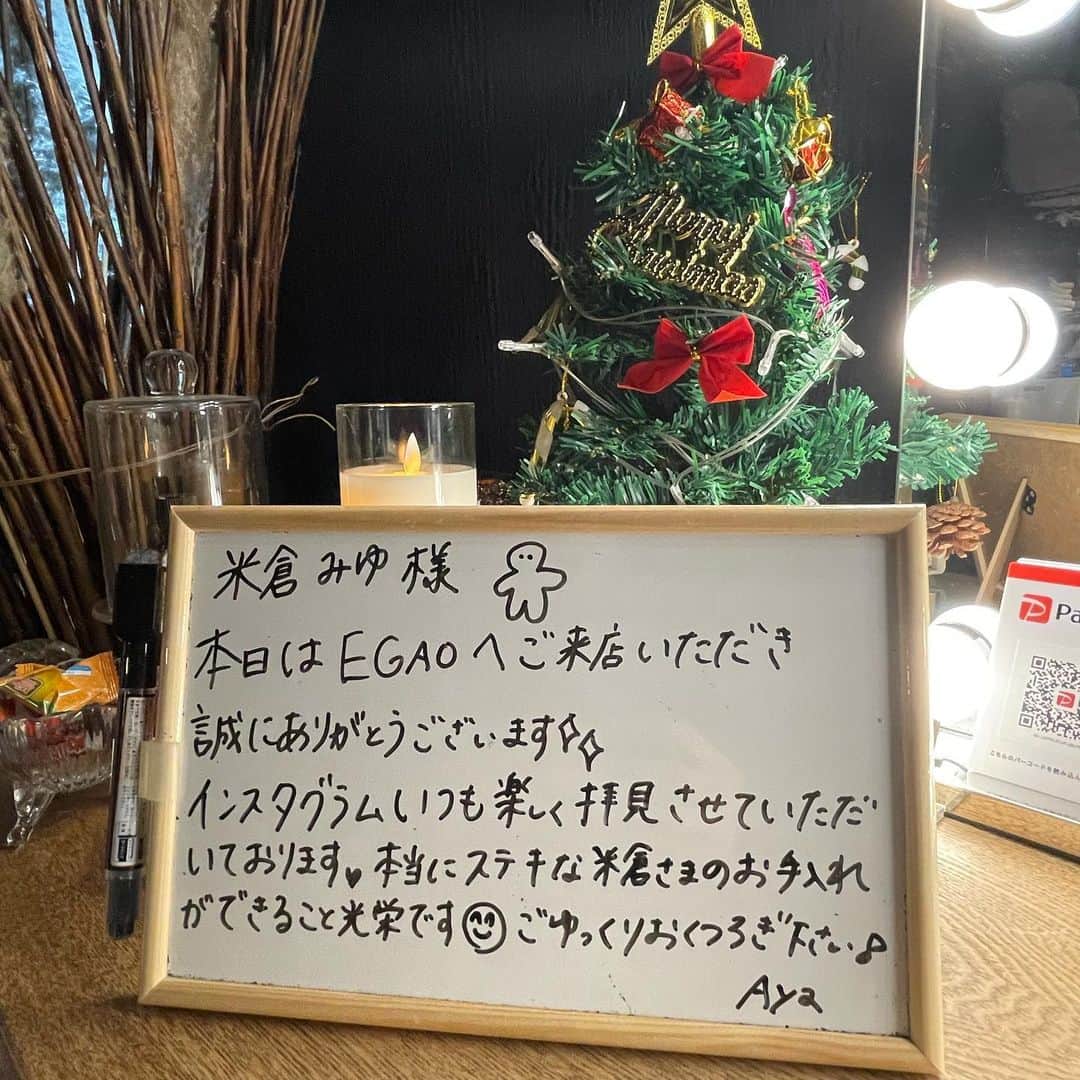 米倉みゆ様
本日はEGAOへご来店いただき
誠にありがとうございます
インスタグラムいつも楽しく拝見させていただ
いております♥本当にステキな米倉さまのお手入れ
ができること光栄です ごゆっくりおくつろぎ下さい♪
Aya
Merry
Pa
こちらのバーコードを読み込ん